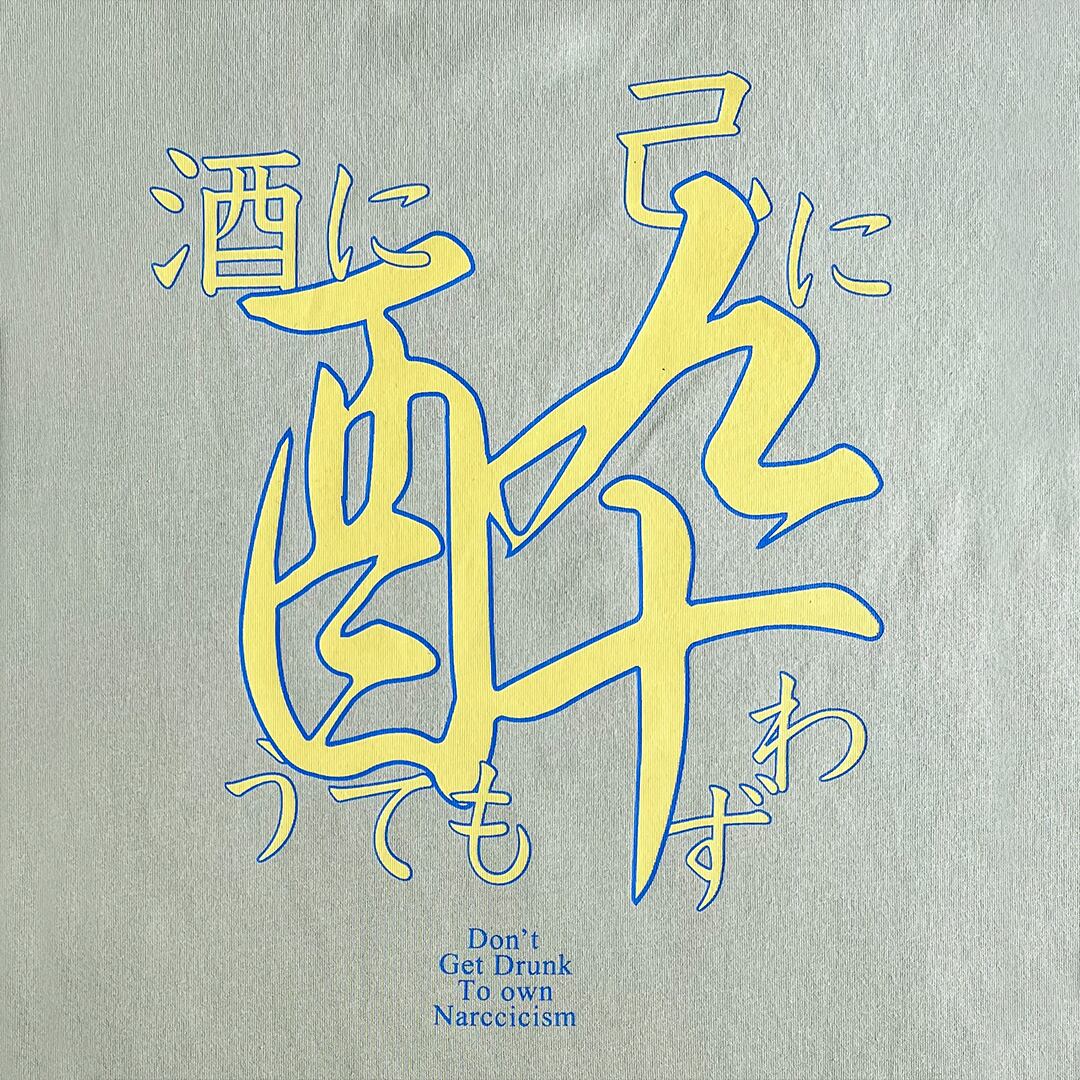 酒に
己に
酔
うても
わず
Don't
Get Drunk
To own
Narccicism